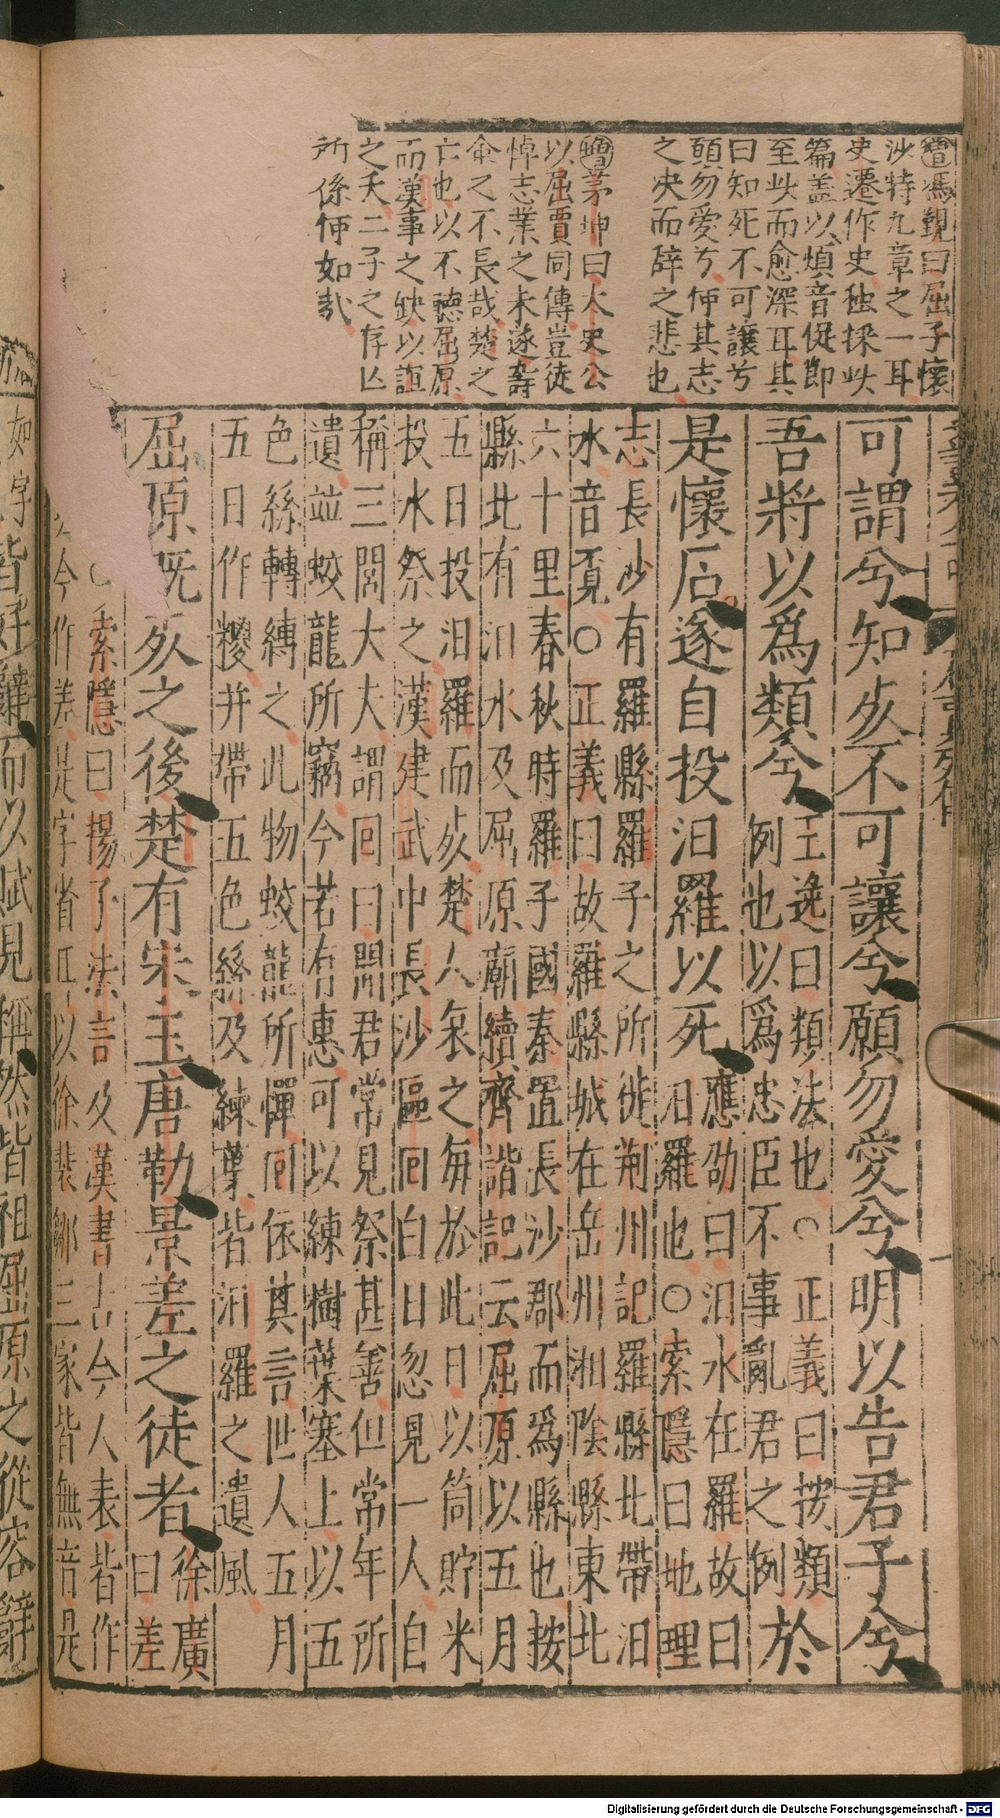 增馮覲曰屈子懷
沙特九章之一耳
史遷作史独採此
篇盖以煩音促節
至此而愈深耳其
曰知死不可讓兮
願勿愛兮何其志
之决而辞之悲也
增茅坤曰太史公
以屈賈同傳豈徒
悼志業之未遂壽
命之不長哉楚之
亡也以不聽屈原
而漢事之缺以誼
之夭二子之存亾
所係何如哉
可謂兮知死不可讓兮願勿愛兮明以告君子兮
吾將以爲類兮
王逸曰類法也○正義曰按類
例也以爲忠臣不事亂君之例
於
是懷石遂自投汨羅以死
應劭曰汨水在羅故曰
汨羅也○索隱曰地理
志長沙有羅縣羅子之所徙荆州記羅縣北帶汨
水音覓○正義曰故羅縣城在岳州湘陰縣東北
六十里春秋時羅子國秦置長沙郡而爲縣也按
縣北有汨水及屈原廟續齊諧記云屈原以五月
五日投汨羅而死楚人哀之每於此日以筒貯米
投水祭之漢建武中長沙區回白日忽見一人自
稱三閭大夫謂回曰聞君常見祭甚善但常年所
遺並蛟龍所竊今若有惠可以練樹葉塞上以五
色絲轉縛之此物蛟龍所憚回依其言世人五月
五日作糉并帶五色絲及練葉皆汨羅之遺風
屈原既死之後楚有宋玉唐勒景差之徒者
徐廣
曰差
索隱曰揚子法言及漢書古今人表皆作
今作差是字省耳以徐裴鄒三家皆無音是
如字
皆好辭而以賦見稱然皆祖屈原之從容辭
Digitalisierung gefördert durch die Deutsche Forschungsgemeinschaft - DFG